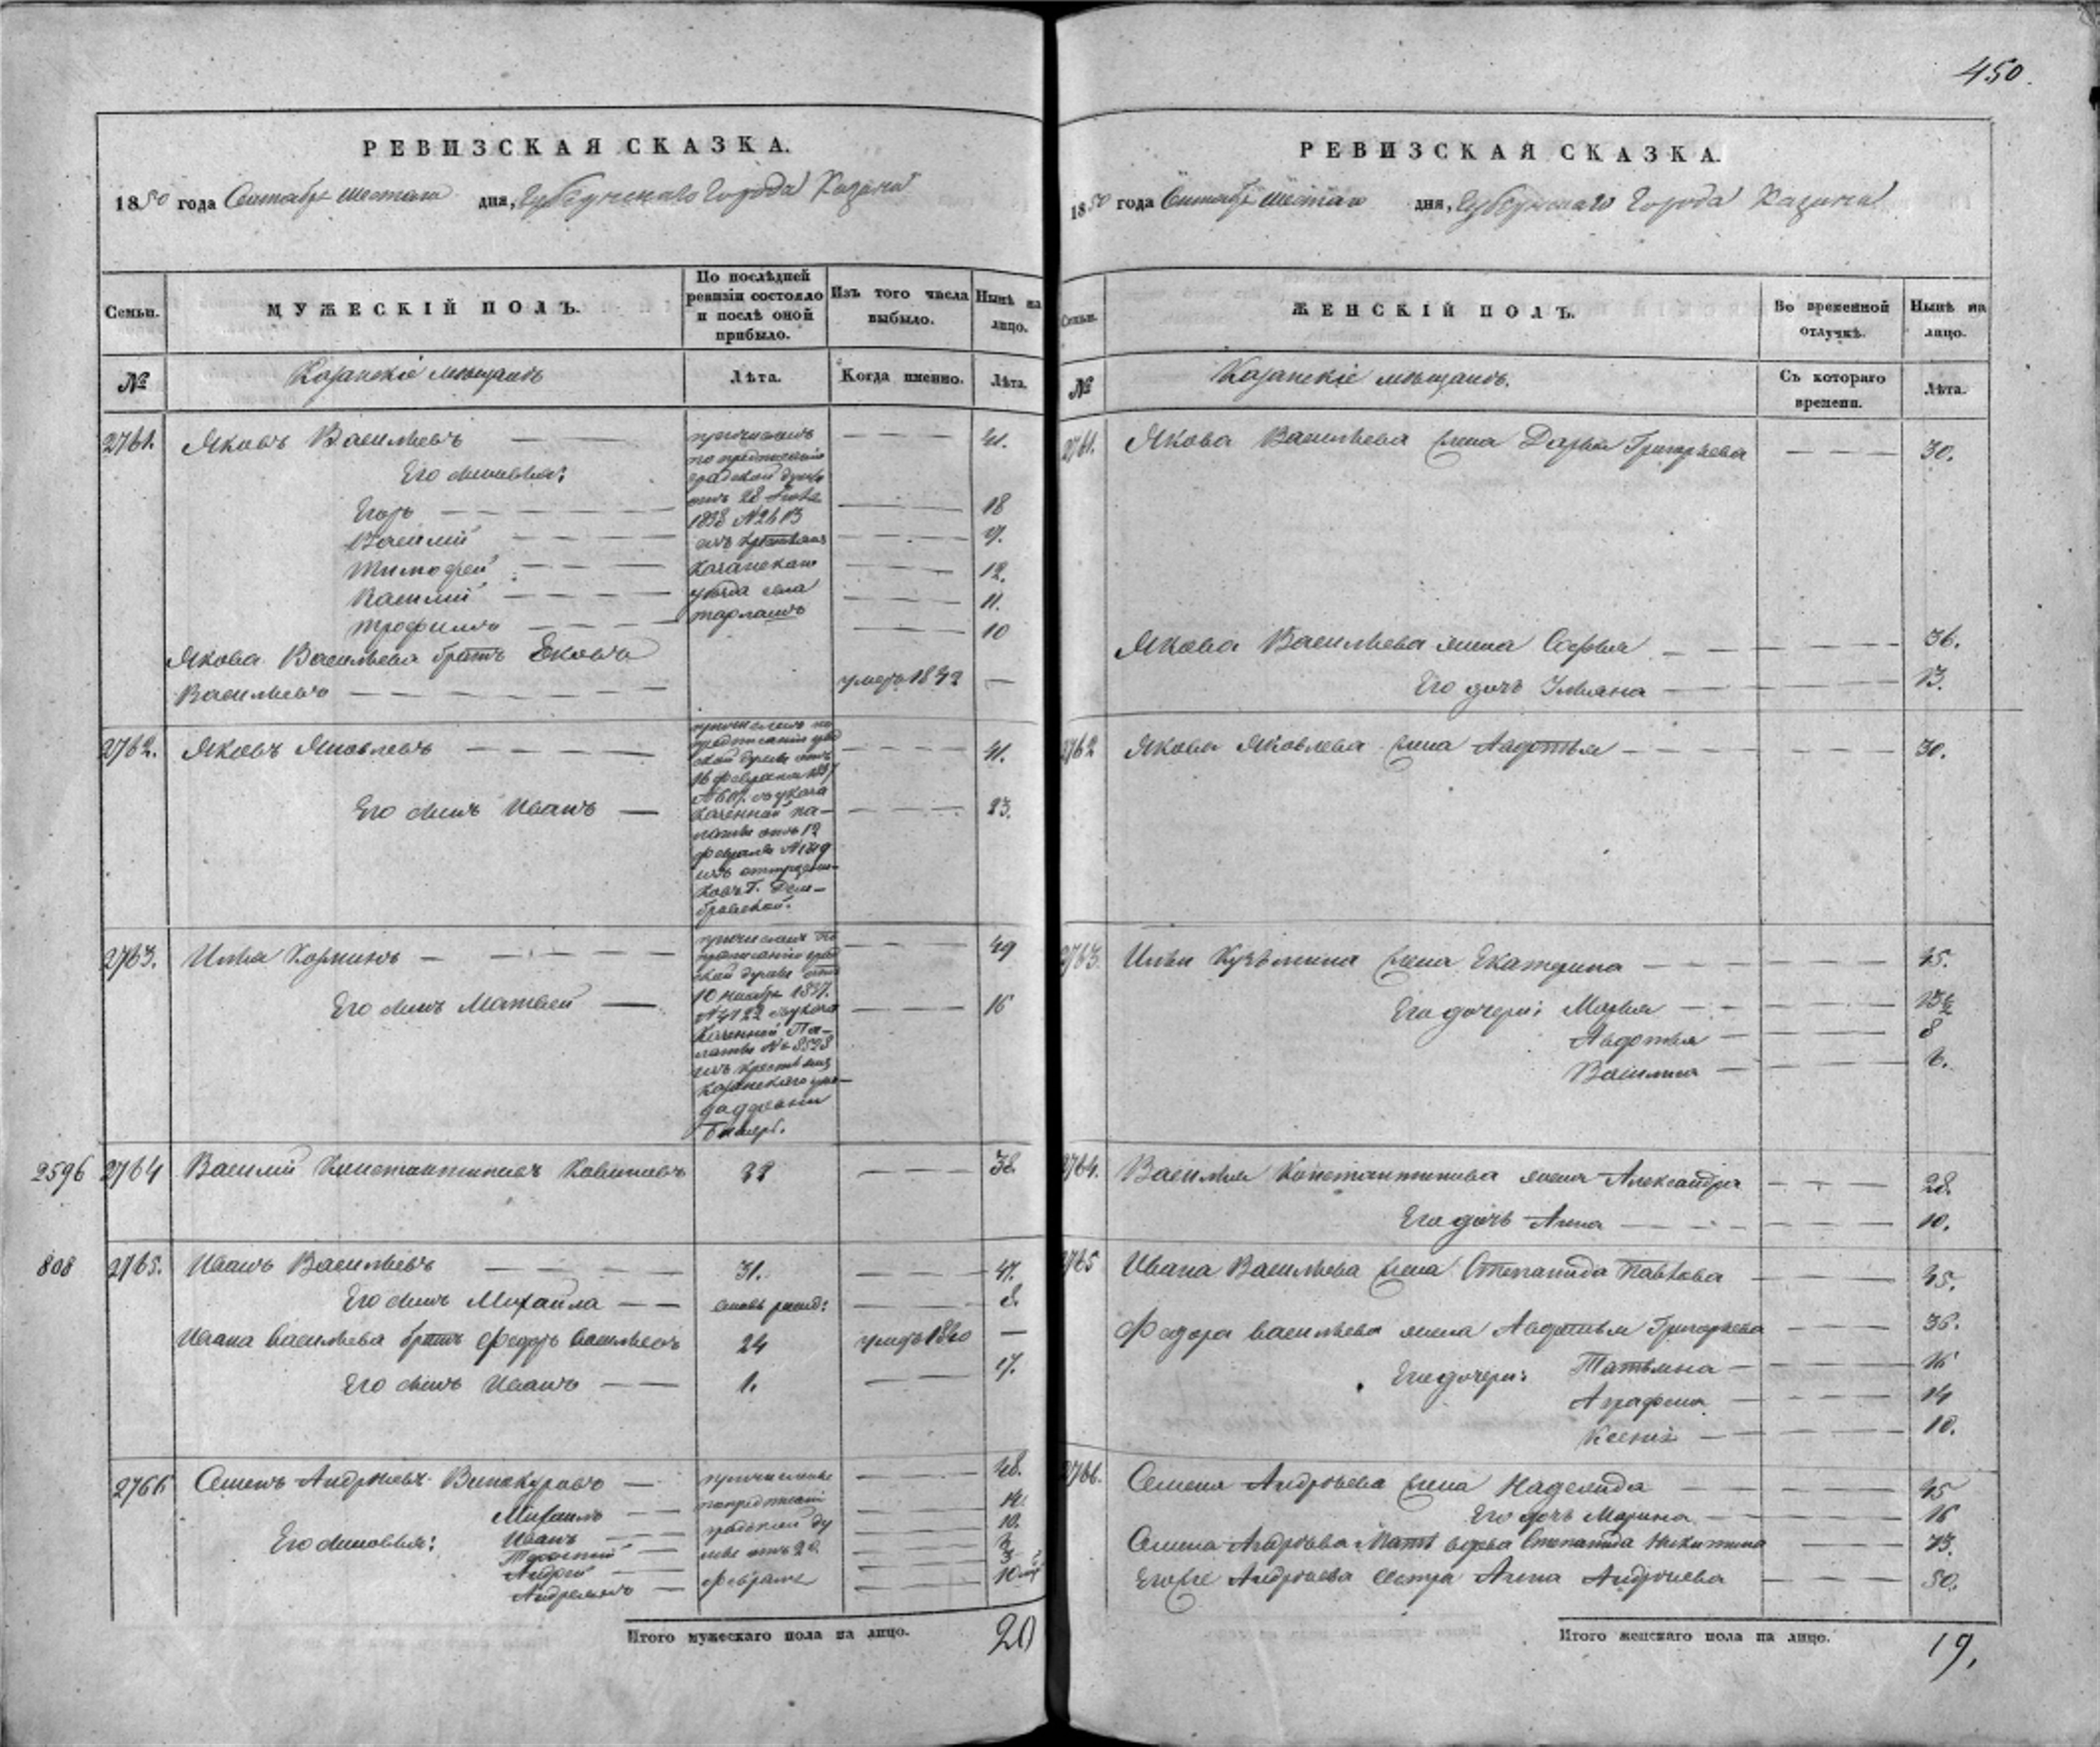 450.
РЕВИЗСКАЯ СКАЗКА.
1850 года Сентября шестаго дня, Губернскаго Города Казани
Семьи.
МУЖЕСКІЙ ПОЛЪ.
По послѣдней ревизіи состояло и послѣ оной прибыло.
Изъ того числа выбыло.
Нынѣ на лицо.
№
Казанскіе мѣщане
Лѣта.
Когда именно.
Лѣта.
2761. Яковъ Васильевъ 41.
причисленъ
по предписанію
градской думы
отъ 28
1838 №2613
изъ крестьянъ
Казанскаго
уѣзда села
Его сыновья:
Егоръ 18
Василій
Тимофей 12.
Василій 11.
Трофимъ 10
Якова Васильева братъ
Васильевъ умеръ —
2762. Яковъ Яковлевъ 41.
причисленъ по
предписанію град
ской думы отъ
16 февраля 1837
указа
Казенной па-
латы отъ 12
февраля
Его сынъ Иванъ 23.
2763. Илья 49
причисленъ по
предписанію град
ской думы отъ
10 ноября 1837.
№4122 указа
Казенной Па-
латы № 8528
изъ крестьянъ
Казанскаго уѣз-
да деревни
Его сынъ Матвей 16
2596 2764 Василій Константиновъ 38.
808 2765. Иванъ Васильевъ 31. 47.
Его сынъ Михайла вновь рожд: 8.
Ивана Васильева братъ Федоръ Васильевъ 24 умеръ 1840 —
Его сынъ Иванъ 1. 17.
2766 Семенъ Андреевъ Винокуровъ 48.
причисленъ
по предписанію
градской ду
мы отъ 20.
февраля
Его сыновья:
Михаилъ 14.
Иванъ 10.
Андрей 3
Итого мужескаго пола на лицо. 20
РЕВИЗСКАЯ СКАЗКА.
1850 года Сентября шестаго дня, Губернскаго Города Казани
Семьи.
ЖЕНСКІЙ ПОЛЪ.
Во временной отлучкѣ.
Нынѣ на лицо.
№
Казанскіе мѣщане.
Съ котораго времени.
Лѣта.
2761. Якова Васильева жена Дарья Григорьева 30.
Якова Васильева жена Софья 36.
Его дочь Ульяна 13.
2762 Якова Яковлева жена Авдотья 30.
2763. Ильи Кузьмина жена Екатерина 45.
Его дочери: Марья
Авдотья 8
Василиса 6.
2764. Василья Константинова жена Александра 28.
Его дочь Анна 10.
2765 Ивана Васильева жена Степанида Павлова 45.
Федора Васильева жена Авдотья Григорьева 36.
Его дочери: Татьяна 16
Аграфена 14
Ксенія 10.
2766. Семена Андреева жена Надежда 45
Его дочь Марина 16
Семена Андреева мать вдова Степанида Никитина 73.
Его же Андреева сестра Анна Андреева 50.
Итого женскаго пола на лицо. 19.